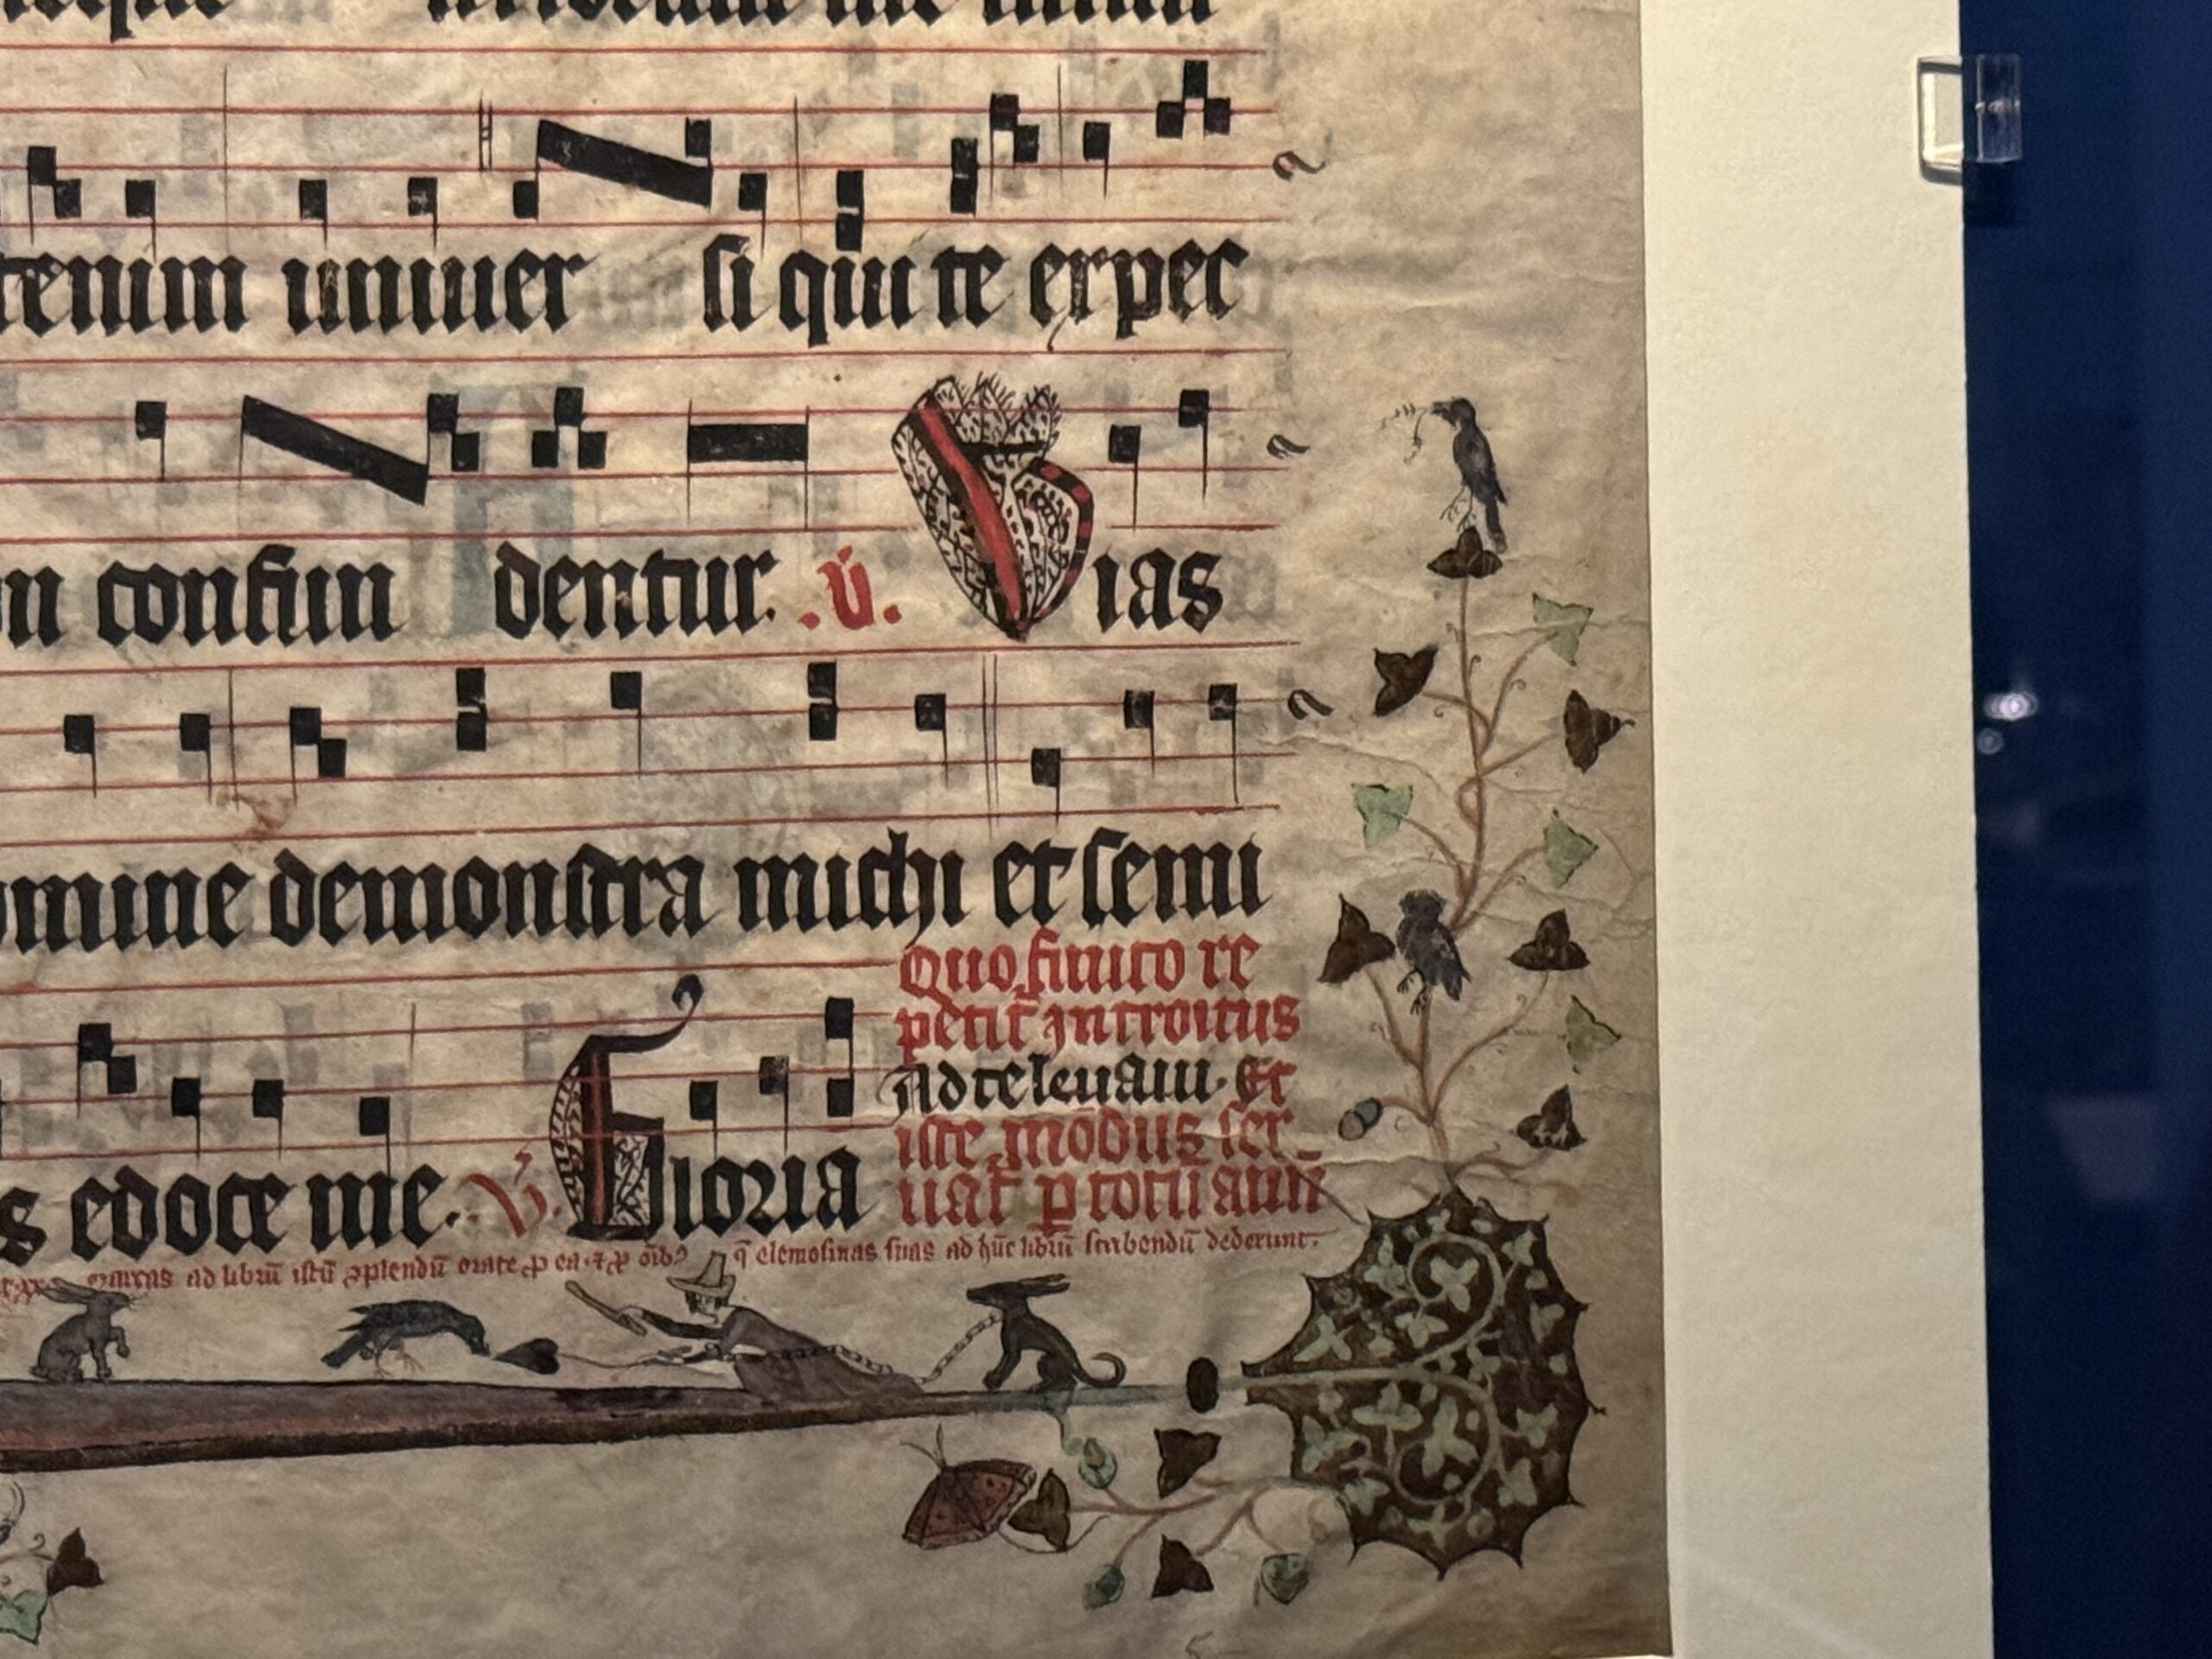 tenim uniuer si qui te expec
confun dentur. .v̇. Uias
omine demonstra michi et semi
Quo finito re
petit̄ introitus
Ad te leuaui. Et
iste modus ser
uat̄ ꝑ totū annū
s edoce me. V. Gloria
ad librū istū ꝯplendū orate ꝓ ea ⁊ ꝓ oīb⁹ q̄ elemosinas suas ad hūc librū scribendū dederunt.